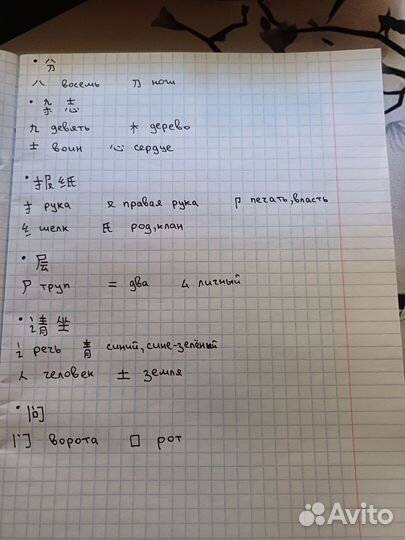 • 分
八 восемь 刀 нош
• 杂 志
九 девять 木 дерево
士 воин 心 сердце
• 报纸
扌 рука 又 правая рука 卩 печать, власть
纟 шелк 氏 род, клан
• 层
尸 труп 二 два 厶 личный
• 请 坐
讠 речь 青 синий, сине-зелёный
人 человек 土 земля
• 问
门 ворота 口 рот
Avito